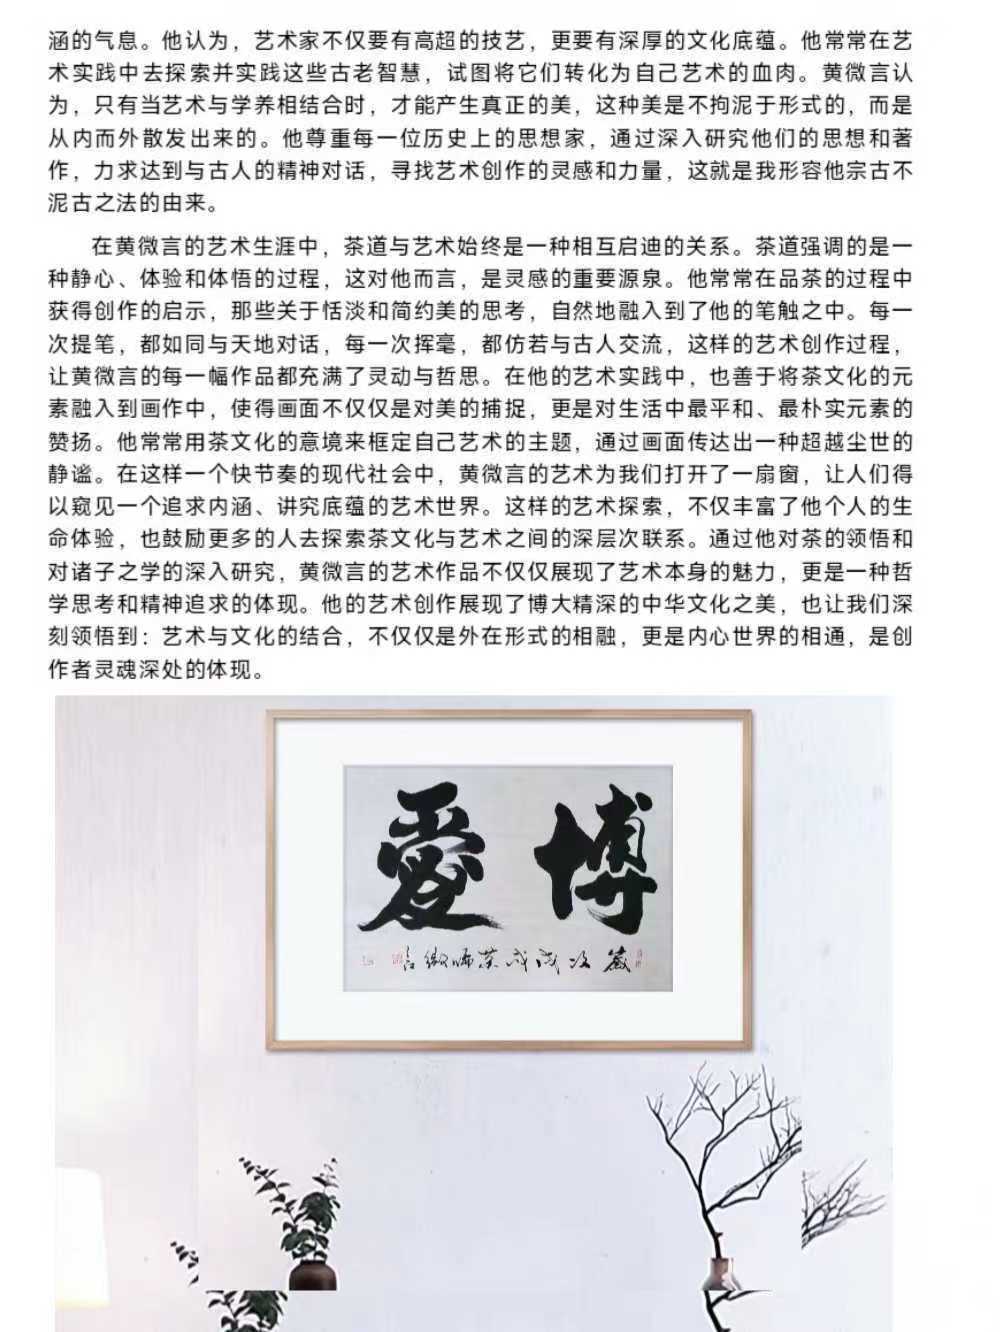 涵的气息。他认为，艺术家不仅要有高超的技艺，更要有深厚的文化底蕴。他常常在艺
术实践中去探索并实践这些古老智慧，试图将它们转化为自己艺术的血肉。黄微言认
为，只有当艺术与学养相结合时，才能产生真正的美，这种美是不拘泥于形式的，而是
从内而外散发出来的。他尊重每一位历史上的思想家，通过深入研究他们的思想和著
作，力求达到与古人的精神对话，寻找艺术创作的灵感和力量，这就是我形容他宗古不
泥古之法的由来。
在黄微言的艺术生涯中，茶道与艺术始终是一种相互启迪的关系。茶道强调的是一
种静心、体验和体悟的过程，这对他而言，是灵感的重要源泉。他常常在品茶的过程中
获得创作的启示，那些关于恬淡和简约美的思考，自然地融入到了他的笔触之中。每一
次提笔，都如同与天地对话，每一次挥毫，都仿若与古人交流，这样的艺术创作过程，
让黄微言的每一幅作品都充满了灵动与哲思。在他的艺术实践中，也善于将茶文化的元
素融入到画作中，使得画面不仅仅是对美的捕捉，更是对生活中最平和、最朴实元素的
赞扬。他常常用茶文化的意境来框定自己艺术的主题，通过画面传达出一种超越尘世的
静谧。在这样一个快节奏的现代社会中，黄微言的艺术为我们打开了一扇窗，让人们得
以窥见一个追求内涵、讲究底蕴的艺术世界。这样的艺术探索，不仅丰富了他个人的生
命体验，也鼓励更多的人去探索茶文化与艺术之间的深层次联系。通过他对茶的领悟和
对诸子之学的深入研究，黄微言的艺术作品不仅仅展现了艺术本身的魅力，更是一种哲
学思考和精神追求的体现。他的艺术创作展现了博大精深的中华文化之美，也让我们深
刻领悟到：艺术与文化的结合，不仅仅是外在形式的相融，更是内心世界的相通，是创
作者灵魂深处的体现。
博愛
歲次戊戌茶师微言